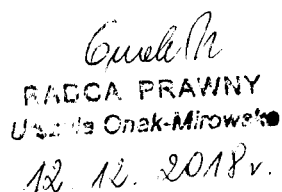 RADCA PRAWNY
Urszula Onak-Mirowska
12. 12. 2018 r.